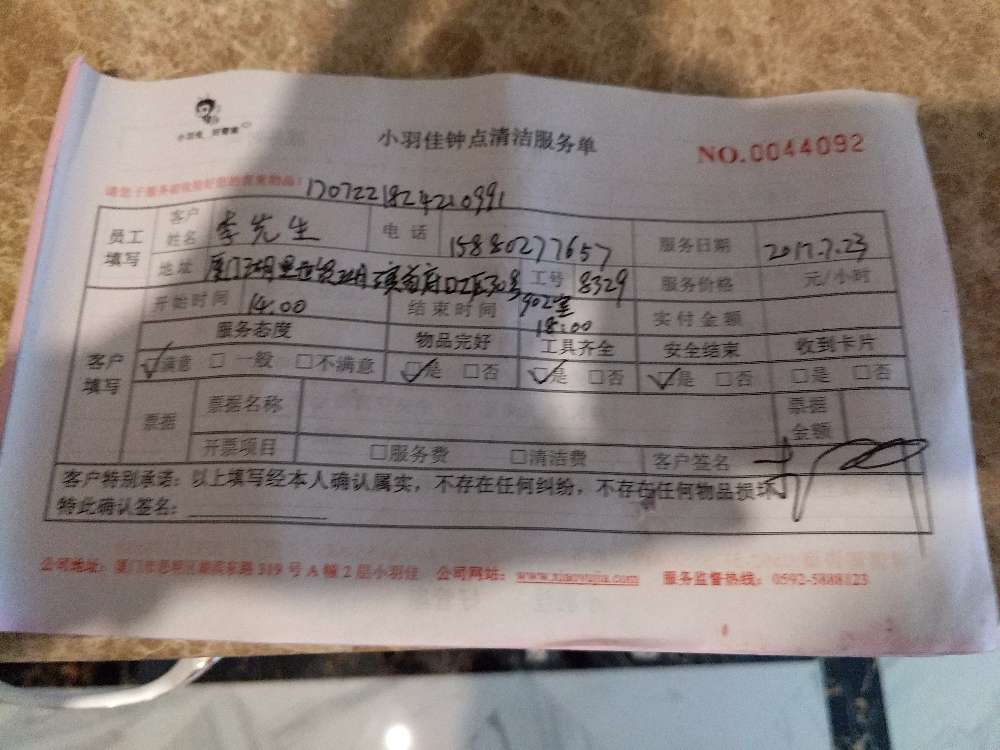 小羽佳 好管家
小羽佳钟点清洁服务单
NO.0044092
1707221824210991
员工填写 客户姓名 李先生 电话 15880277657 服务日期 2017.7.23
地址 厦门湖里 902室 工号 8329 服务价格 元/小时
客户填写 开始时间 14:00 结束时间 18:00 实付金额
服务态度 物品完好 工具齐全 安全结束 收到卡片
☑满意 □一般 □不满意 ☑是 □否 ☑是 □否 ☑是 □否 □是 □否
票据 票据名称 票据金额
开票项目 □服务费 □清洁费 客户签名
客户特别承诺:以上填写经本人确认属实,不存在任何纠纷,不存在任何物品损坏,
特此确认签名:
公司地址:厦门市思明区 319号A幢2层小羽佳 公司网站:www.xiaoyujia.com 服务监督热线:0592-5888123